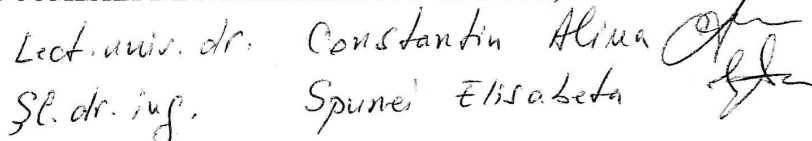 Lect. univ. dr. Constantin Alina
Șl. dr. ing. Spunei Elisabeta